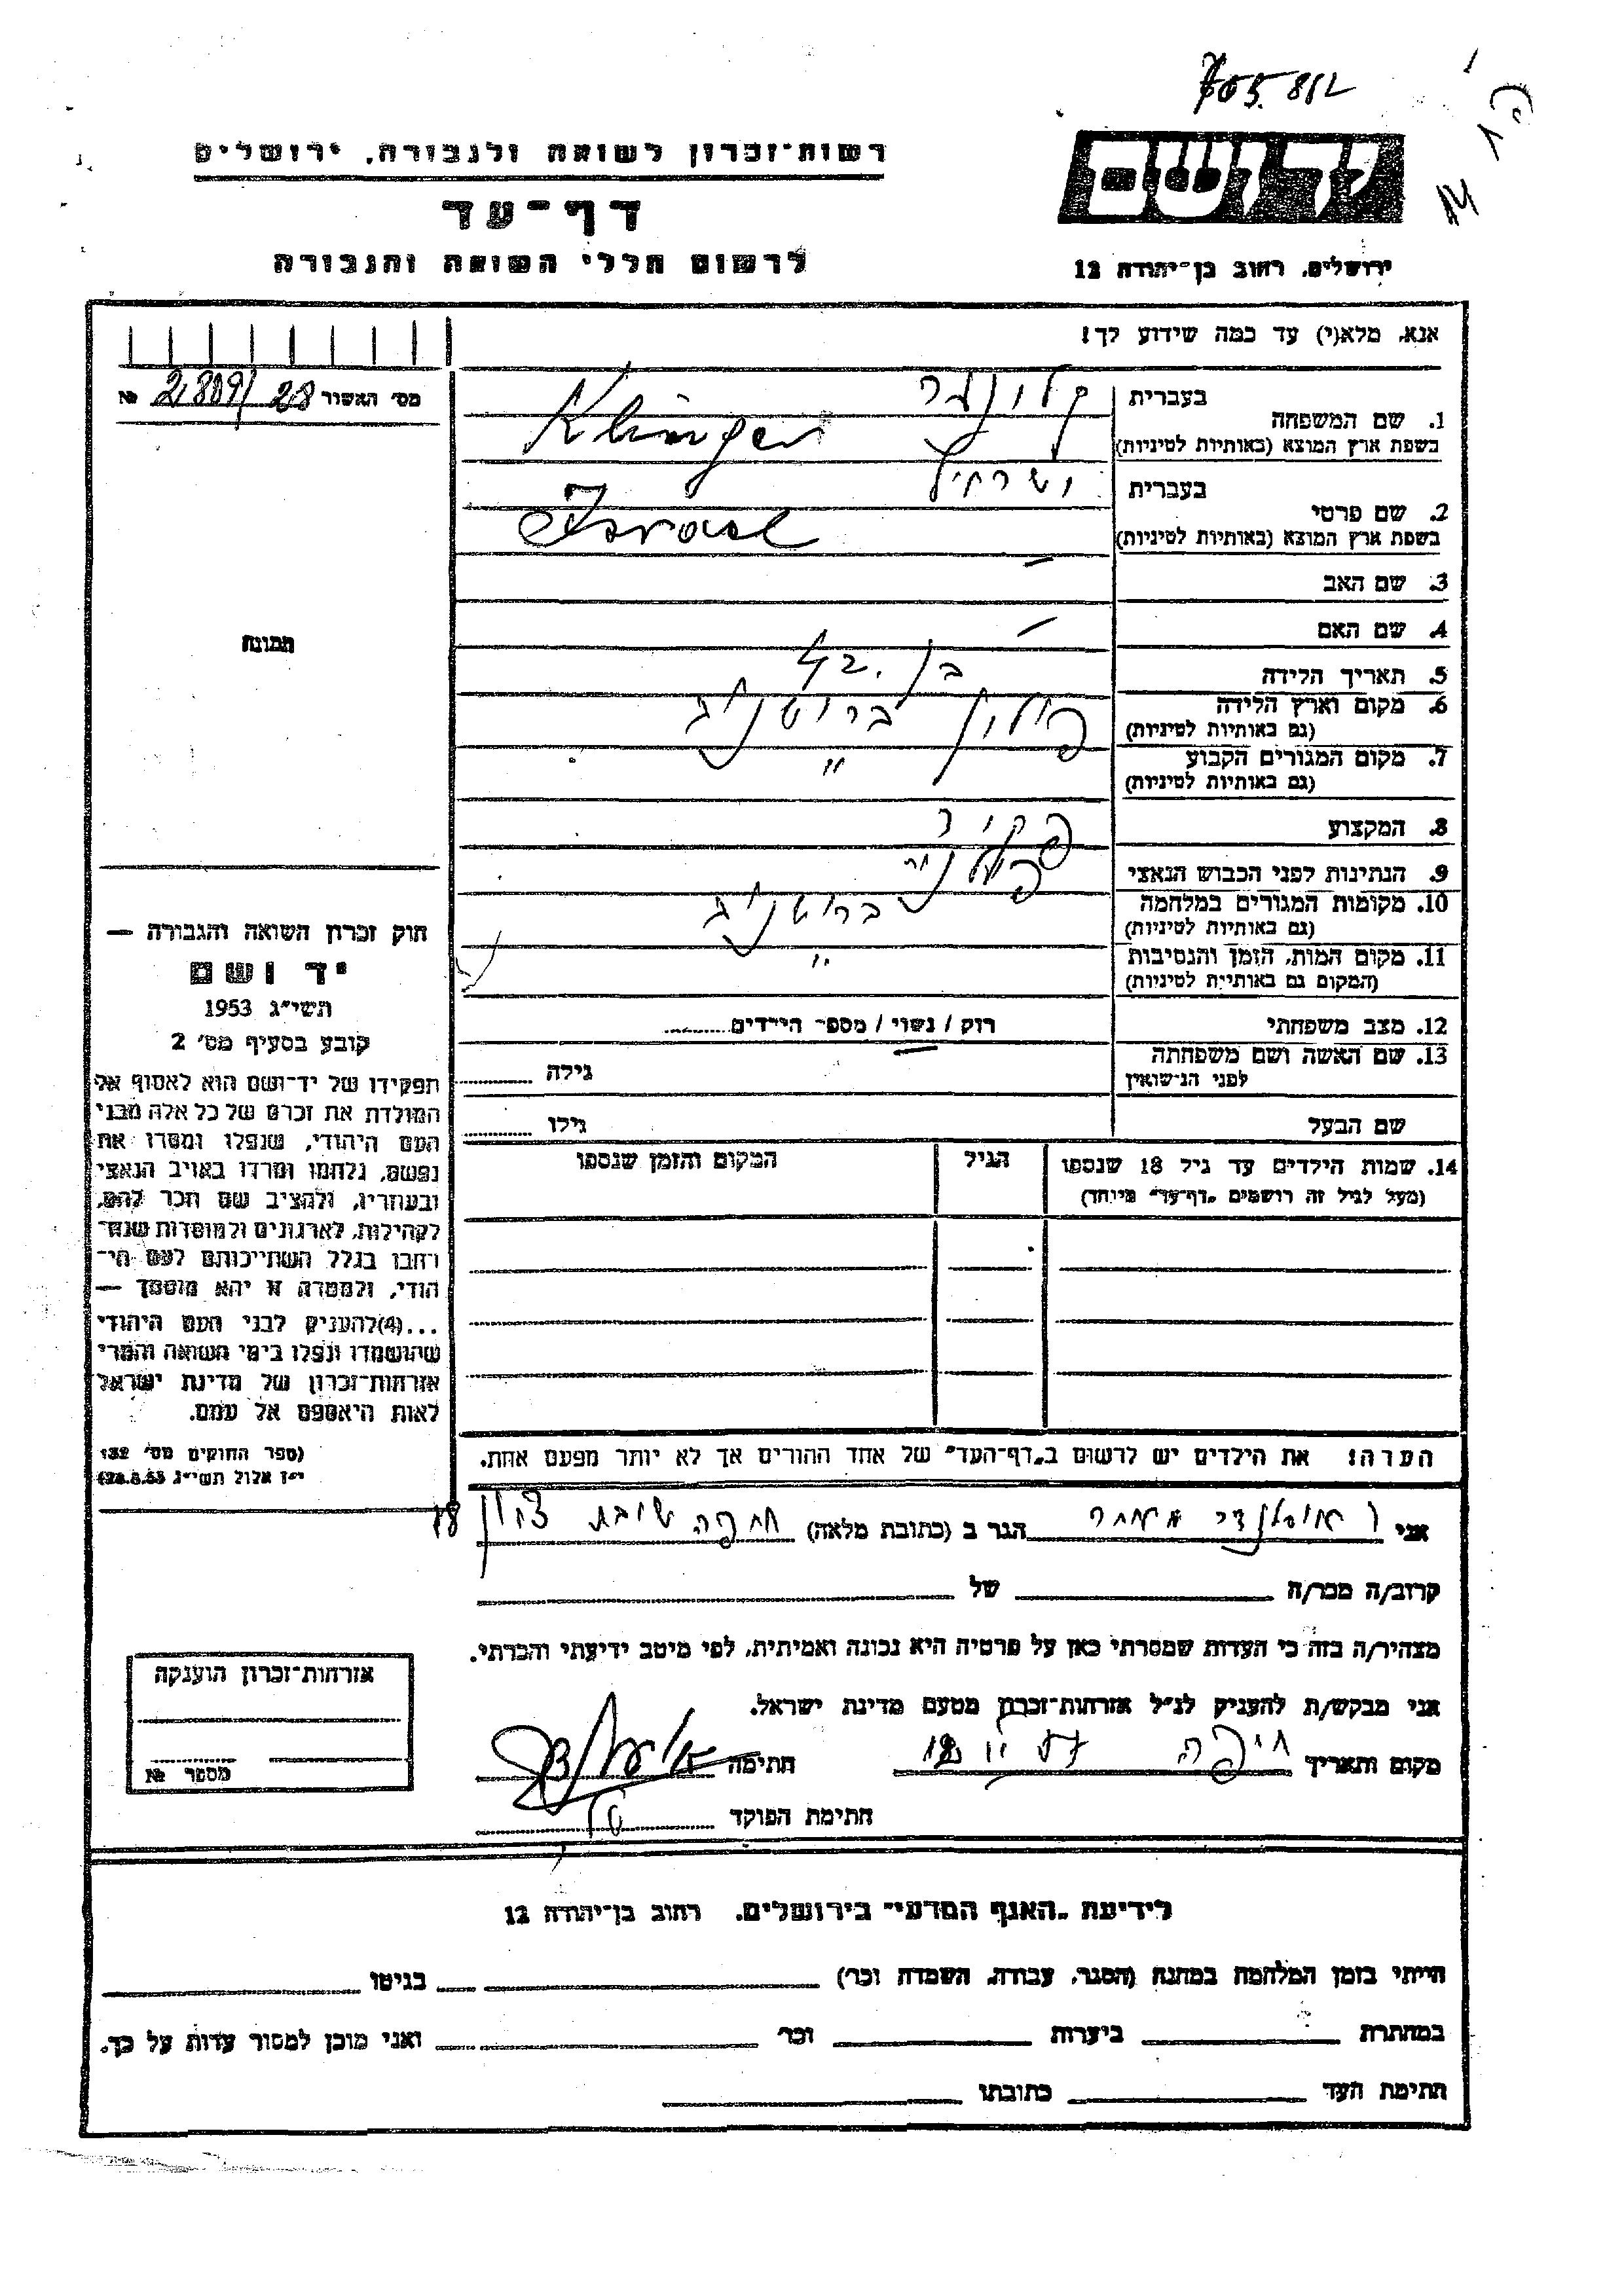 705.812
רשות־זכרון לשואה ולגבורה, ירושלים
דף־עד
לרשום חללי השואה והגבורה
ירושלים, רחוב בן־יהודה 12
אנא, מלא(י) עד כמה שידוע לך!
מס׳ האשור 28 /2809 №
1. שם המשפחה
בעברית קלינגר
בשפת ארץ המוצא (באותיות לטיניות) Klinger
2. שם פרטי
בעברית ישראל
בשפת ארץ המוצא (באותיות לטיניות) Israel
3. שם האב –
4. שם האם –
תמונה
5. תאריך הלידה בן 42.
6. מקום וארץ הלידה פולין
(גם באותיות לטיניות)
7. מקום המגורים הקבוע "
(גם באותיות לטיניות)
8. המקצוע פקיד
9. הנתינות לפני הכבוש הנאצי
10. מקומות המגורים במלחמה
(גם באותיות לטיניות)
11. מקום המות, הזמן והנסיבות "
(המקום גם באותיות לטיניות)
12. מצב משפחתי רוק / נשוי / מספר הילדים
13. שם האשה ושם משפחתה
לפני הנישואין
גילה
שם הבעל גילו
14. שמות הילדים עד גיל 18 שנספו
(מעל לגיל זה רושמים „דף־עד״ מיוחד)
הגיל
המקום והזמן שנספו
הערה! את הילדים יש לרשום ב„דף־העד״ של אחד ההורים אך לא יותר מפעם אחת.
חוק זכרון השואה והגבורה —
יד ושם
תשי״ג 1953
קובע בסעיף מס׳ 2
תפקידו של יד־ושם הוא לאסוף אל
המולדת את זכרם של כל אלה מבני
העם היהודי, שנפלו ומסרו את
נפשם, נלחמו ומרדו באויב הנאצי
ובעוזריו, ולהציב שם וזכר להם,
לקהילות, לארגונים ולמוסדות שנח־
רחבו בגלל השתייכותם לעם הי־
הודי, ולמטרה זו יהא מוסמך —
...(4)להעניק לבני העם היהודי
שהושמדו ונפלו בימי השואה והמרי
אזרחות־זכרון של מדינת ישראל
לאות היאספם אל עמם.
(ספר החוקים מס׳ 132
י״ז אלול תשי״ג 28.8.53)
אני הגר ב (כתובת מלאה) חיפה שיבת ציון 18
קרוב/ה מכר/ה של
מצהיר/ה בזה כי העדות שמסרתי כאן על פרטיה היא נכונה ואמיתית, לפי מיטב ידיעתי והכרתי.
אני מבקש/ת להעניק לנ״ל אזרחות־זכרון מטעם מדינת ישראל.
מקום ותאריך חיפה חתימה
חתימת הפוקד
אזרחות־זכרון הוענקה
מספר №
לידיעת „האגף המדעי״ בירושלים. רחוב בן־יהודה 12
הייתי בזמן המלחמה במחנה (הסגר, עבודה, השמדה וכו׳) בגיטו
במחתרת ביערות וכו׳ ואני מוכן למסור עדות על כך.
חתימת העד כתובתו